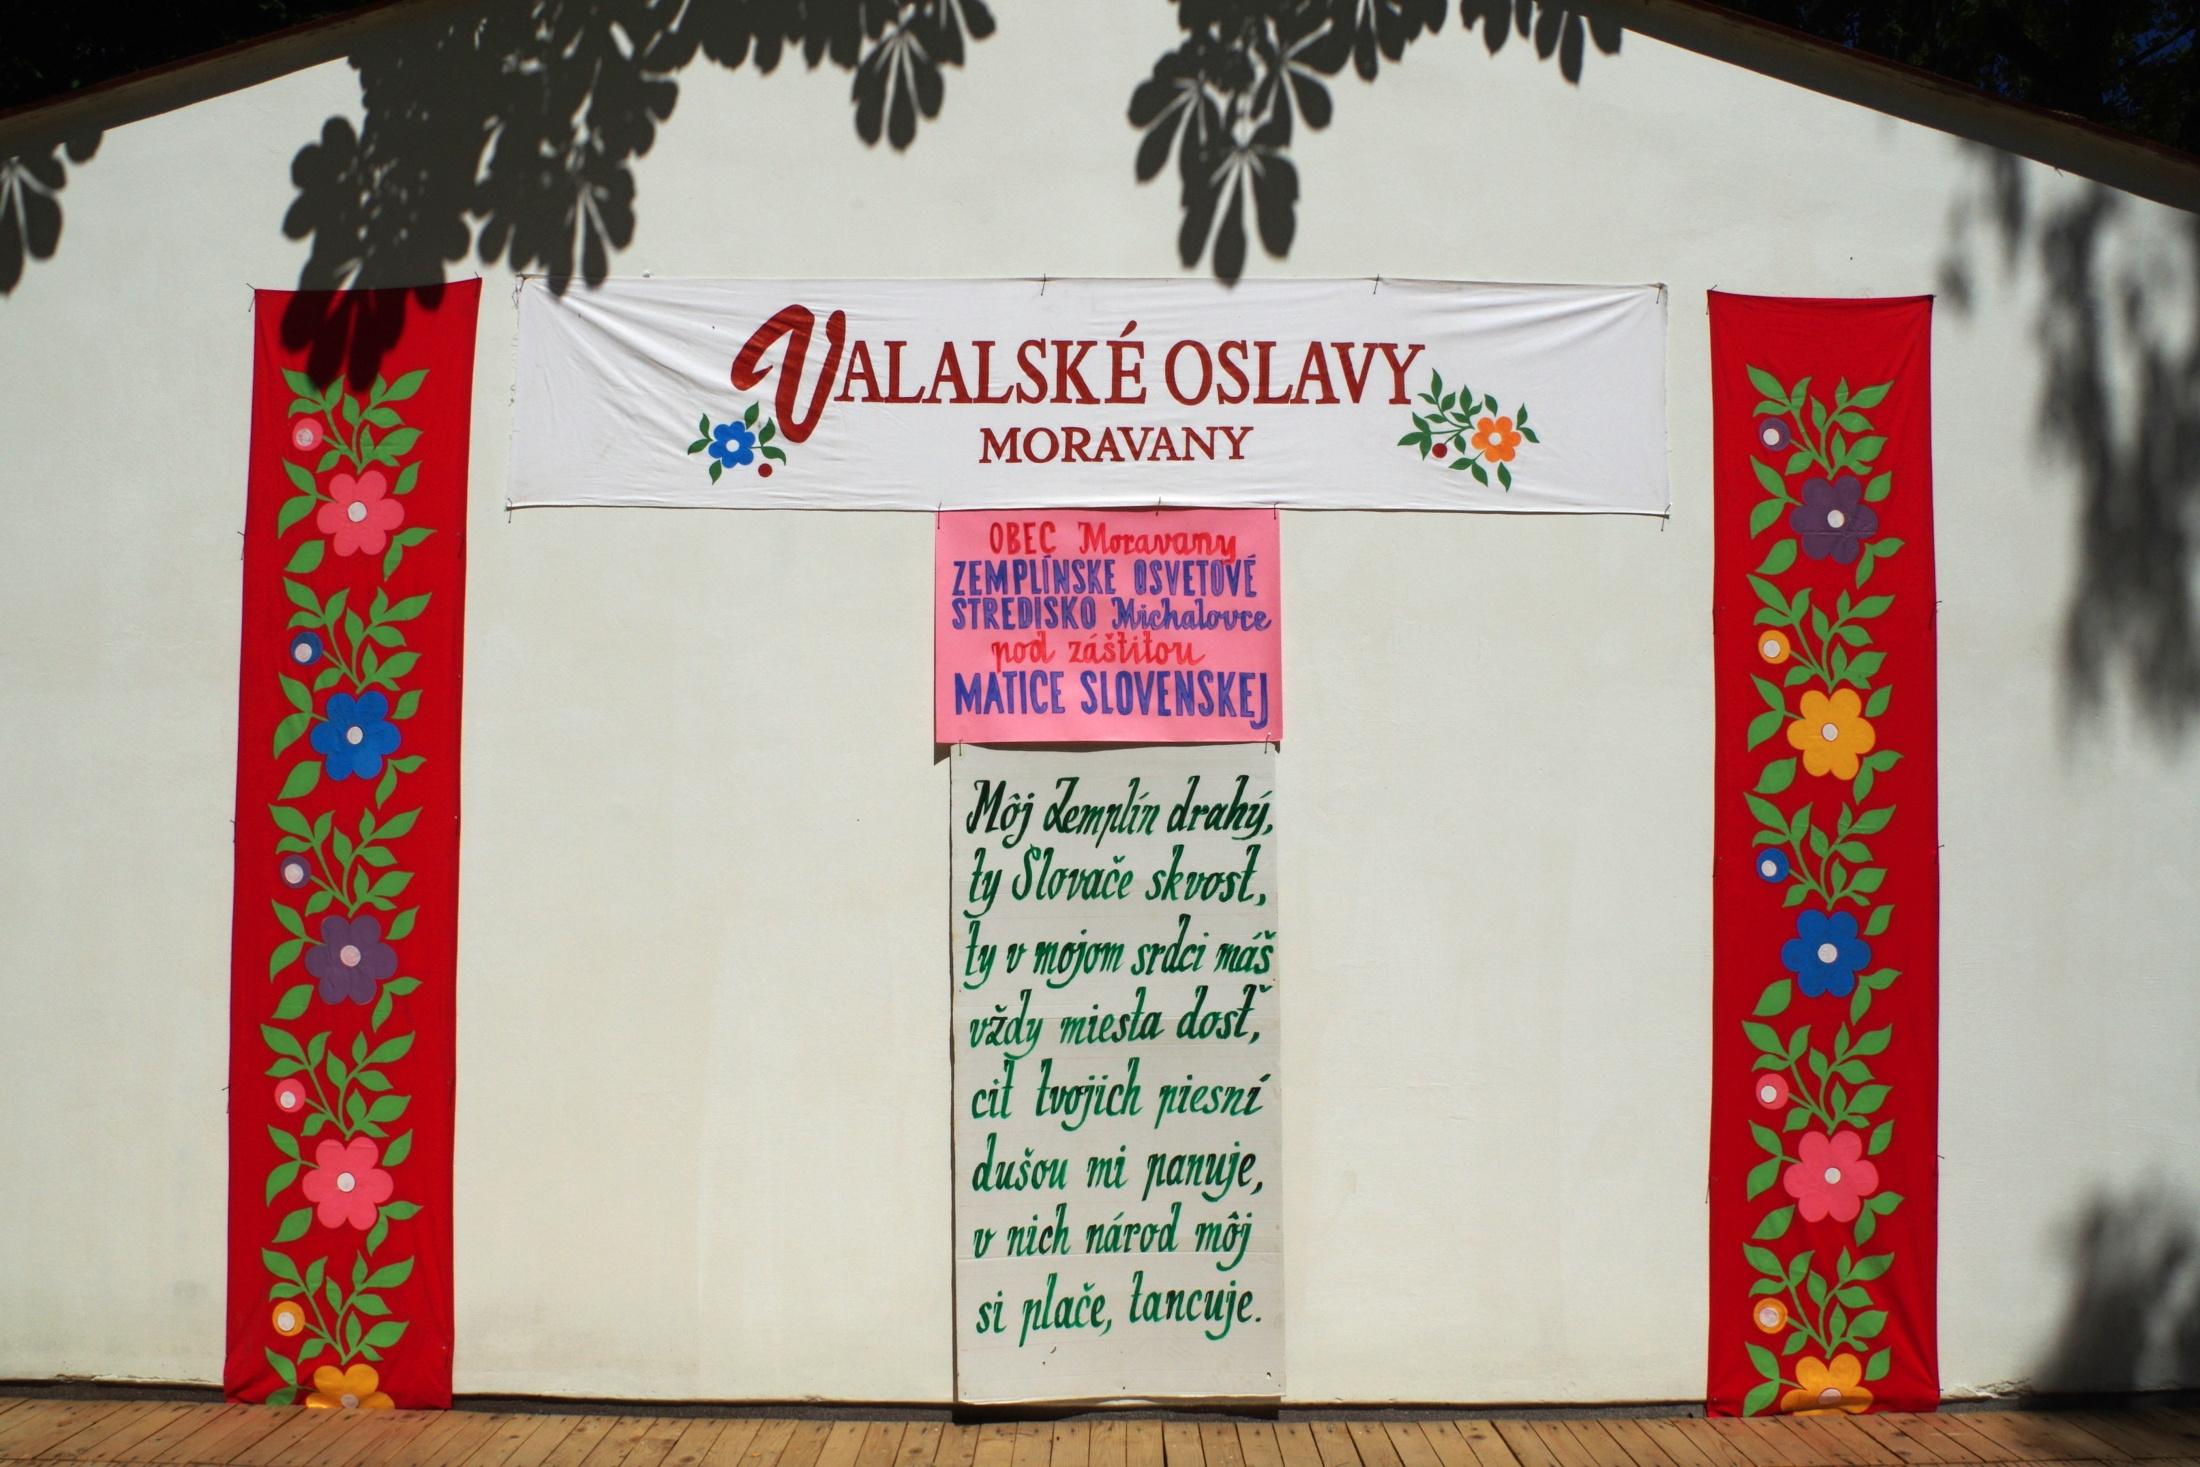 VALALSKÉ OSLAVY
MORAVANY
OBEC Moravany
ZEMPLÍNSKE OSVETOVÉ
STREDISKO Michalovce
pod záštitou
MATICE SLOVENSKEJ
Môj Zemplín drahý,
ty Slovače skvost,
ty v mojom srdci máš
vždy miesta dosť,
cit tvojich piesní
dušou mi panuje,
v nich národ môj
si plače, tancuje.